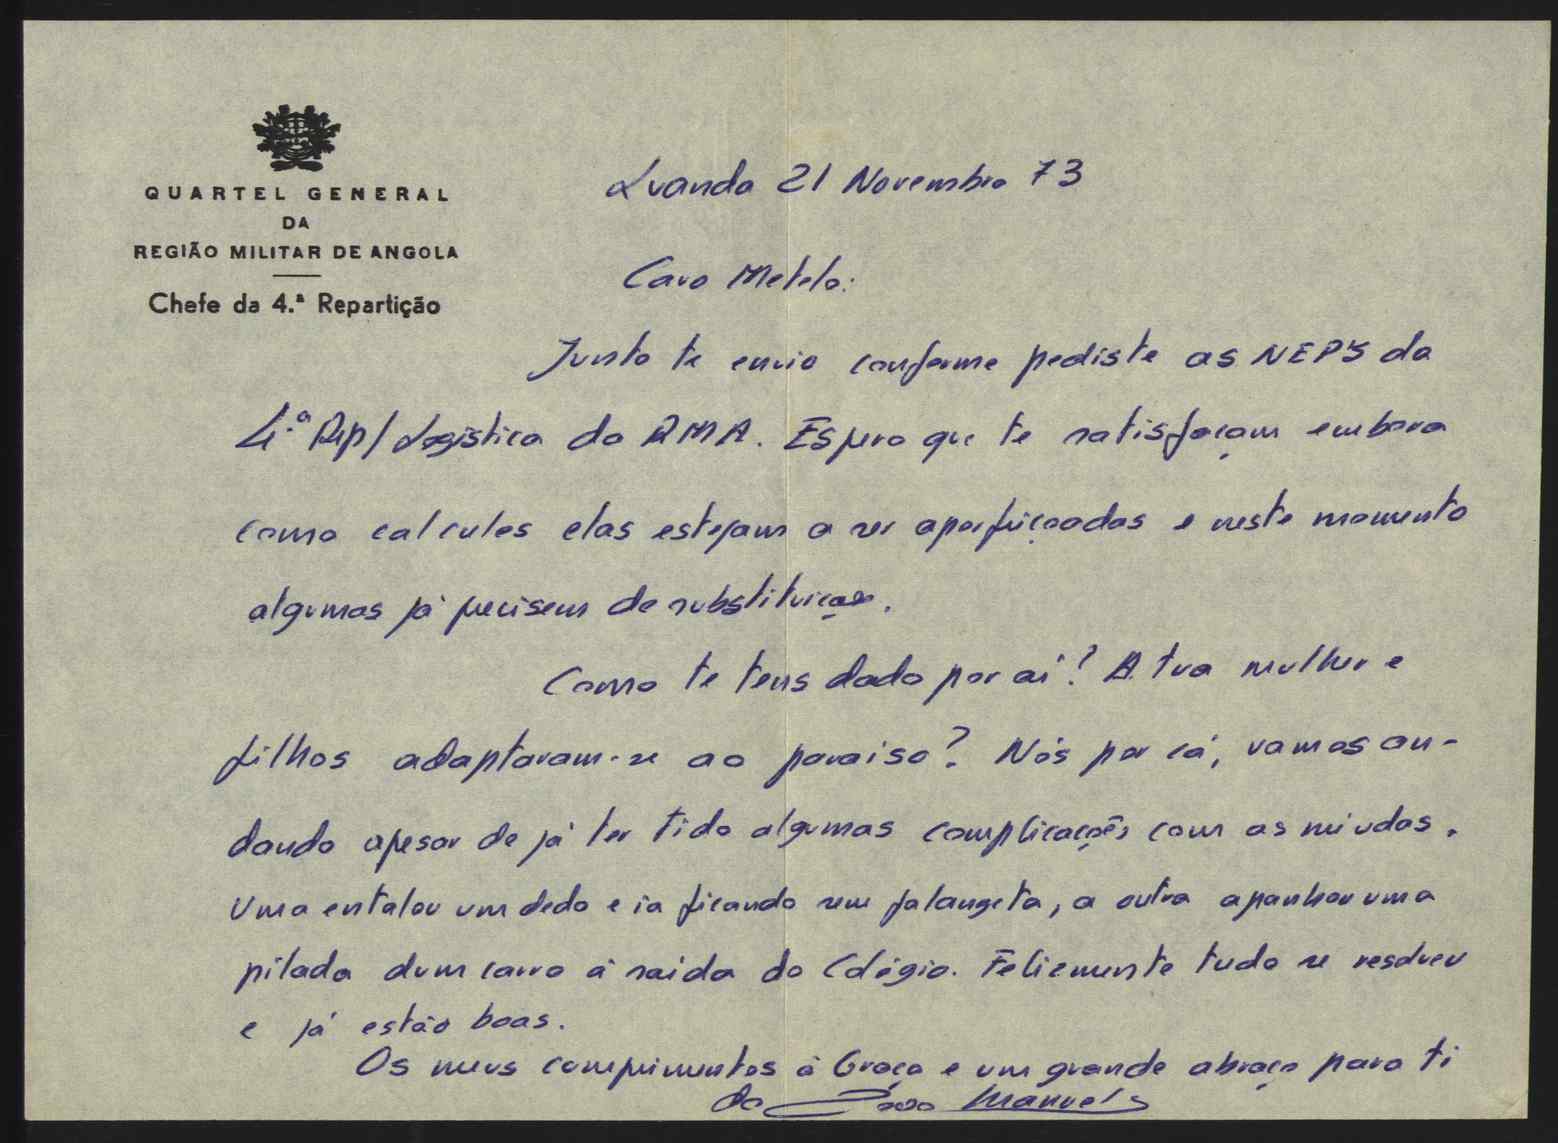 QUARTEL GENERAL
DA
REGIÃO MILITAR DE ANGOLA
Chefe da 4.ª Repartição
Luanda 21 Novembro 73
Caro Metelo:
Junto te envio conforme pediste as NEPS da
4.ª Rep/Logística da RMA. Espero que te satisfaçam embora
como calcules elas estejam a ser aperfeiçoadas e neste momento
algumas já precisem de substituição.
Como te tens dado por aí? A tua mulher e
filhos adaptaram-se ao paraiso? Nós por cá, vamos an-
dando apesar de já ter tido algumas complicações com as miudas.
Uma entalou um dedo e ia ficando sem falangeta, a outra apanhou uma
pilada dum carro à saida do Colégio. Felizmente tudo se resolveu
e já estão boas.
Os meus cumprimentos à Graça e um grande abraço para ti
do Manuel